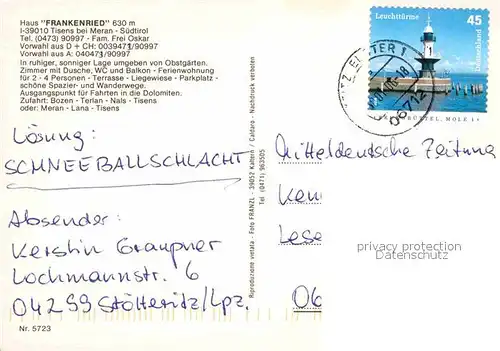 Haus "FRANKENRIED" 630 m
I-39010 Tisens bei Meran - Südtirol
Tel. (0473) 90997 - Fam. Frei Oskar
Vorwahl aus D + CH: 0039473/90997
Vorwahl aus A: 040473/90997
In ruhiger, sonniger Lage umgeben von Obstgärten.
Zimmer mit Dusche, WC und Balkon - Ferienwohnung
für 2 - 4 Personen - Terrasse - Liegewiese - Parkplatz -
schöne Spazier- und Wanderwege.
Ausgangspunkt für Fahrten in die Dolomiten.
Zufahrt: Bozen - Terlan - Nals - Tisens
oder: Meran - Lana - Tisens
Lösung:
SCHNEEBALLSCHLACHT
Absender:
Kerstin Graupner
Lochmannstr. 6
04299 Stötteritz/Lpz.
Nr. 5723
Riproduzione vietata - Foto FRANZL - 39052 Kaltern / Caldaro - Nachdruck verboten
Tel. (0471) 963505
Leuchttürme
45
Deutschland
06712
MOLE 1
Mitteldeutsche Zeitung
Ken
Lese
06
privacy protection
Datenschutz